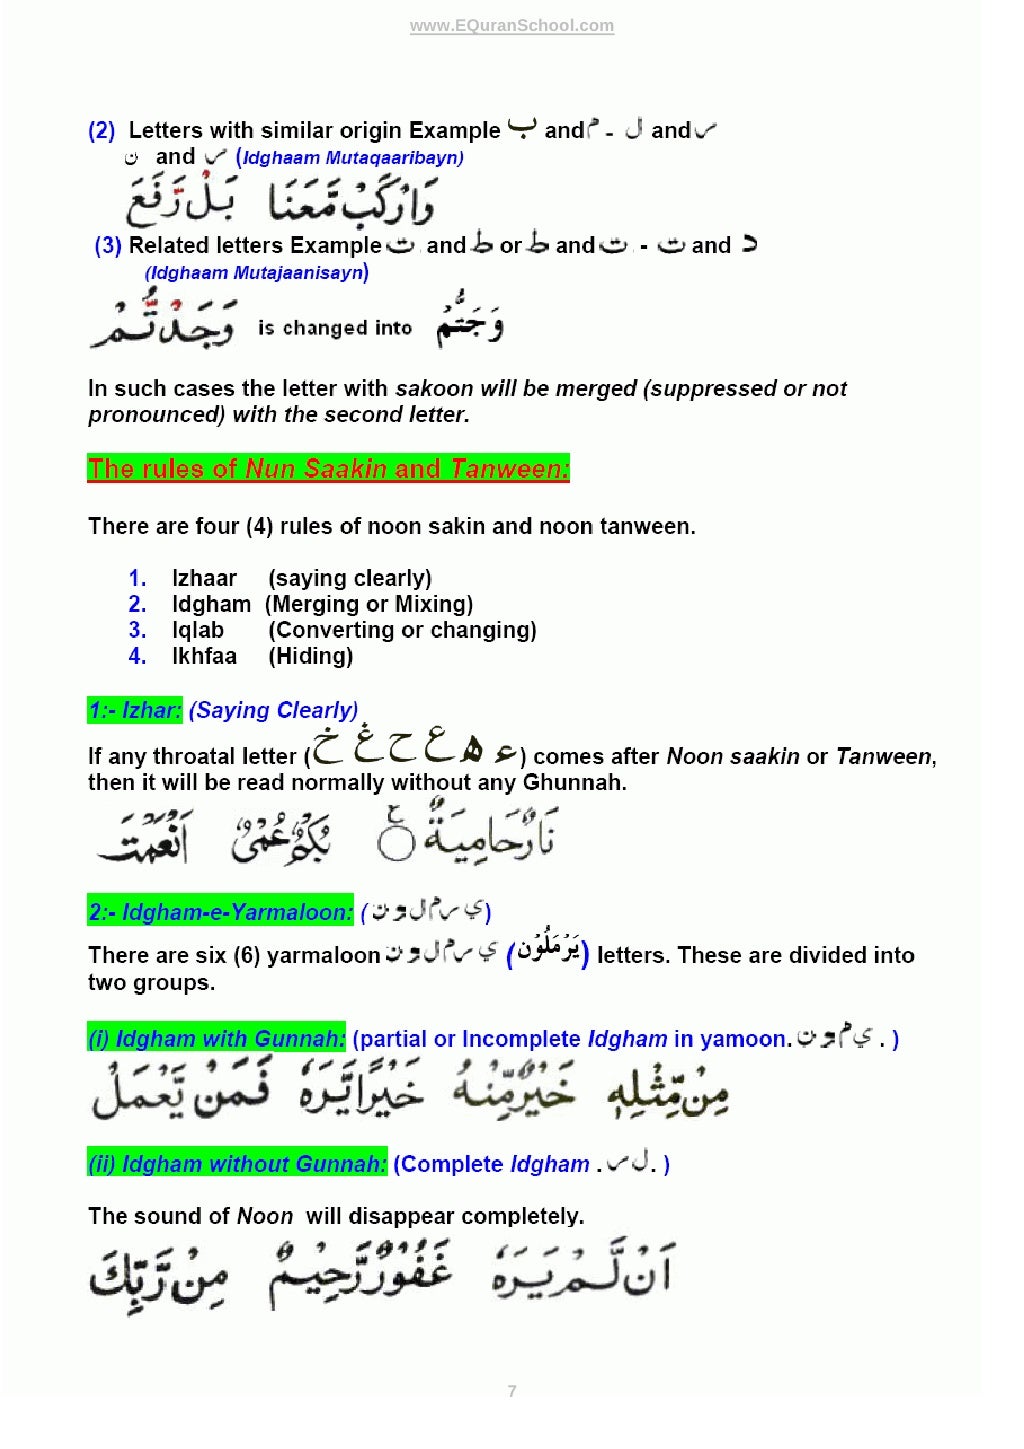 www.EQuranSchool.com
(2) Letters with similar origin Example ب and م - ل and ر
ن and ر (Idghaam Mutaqaaribayn)
وَارْكَبْ مَّعَنَا بَلْ رَّفَعَ
(3) Related letters Example ت and ط or ط and ت - ت and د
(Idghaam Mutajaanisayn)
وَجَدْتُّمْ is changed into وَجَتُّمْ
In such cases the letter with sakoon will be merged (suppressed or not
pronounced) with the second letter.
The rules of Nun Saakin and Tanween:
There are four (4) rules of noon sakin and noon tanween.
1. Izhaar (saying clearly)
2. Idgham (Merging or Mixing)
3. Iqlab (Converting or changing)
4. Ikhfaa (Hiding)
1:- Izhar: (Saying Clearly)
If any throatal letter (ء ه ع ح غ خ) comes after Noon saakin or Tanween,
then it will be read normally without any Ghunnah.
نَارٌ حَامِيَةٌ ۝ع بُكْمٌ عُمْىٌ اَنْعَمْتَ
2:- Idgham-e-Yarmaloon: (ي ر م ل و ن)
There are six (6) yarmaloon ي ر م ل و ن (يَرْمَلُوْن) letters. These are divided into
two groups.
(i) Idgham with Gunnah: (partial or Incomplete Idgham in yamoon. ي م و ن . )
مِنْ مِّثْلِهٖ خَيْرٌ مِّنْهُ خَيْرًا يَّرَهٗ فَمَنْ يَّعْمَلْ
(ii) Idgham without Gunnah: (Complete Idgham . ل ر . )
The sound of Noon will disappear completely.
اَنْ لَّمْ يَرَهٗ غَفُوْرٌ رَّحِيْمٌ مِنْ رَّبِّكَ
7